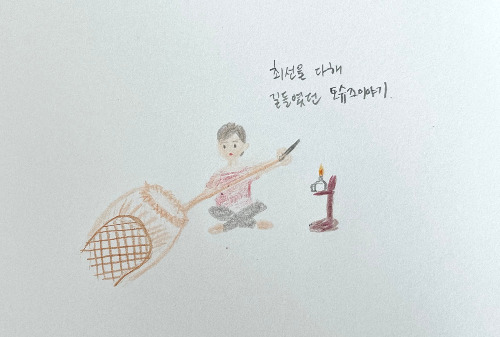 최선을 다해
길들였던 토슈즈이야기.